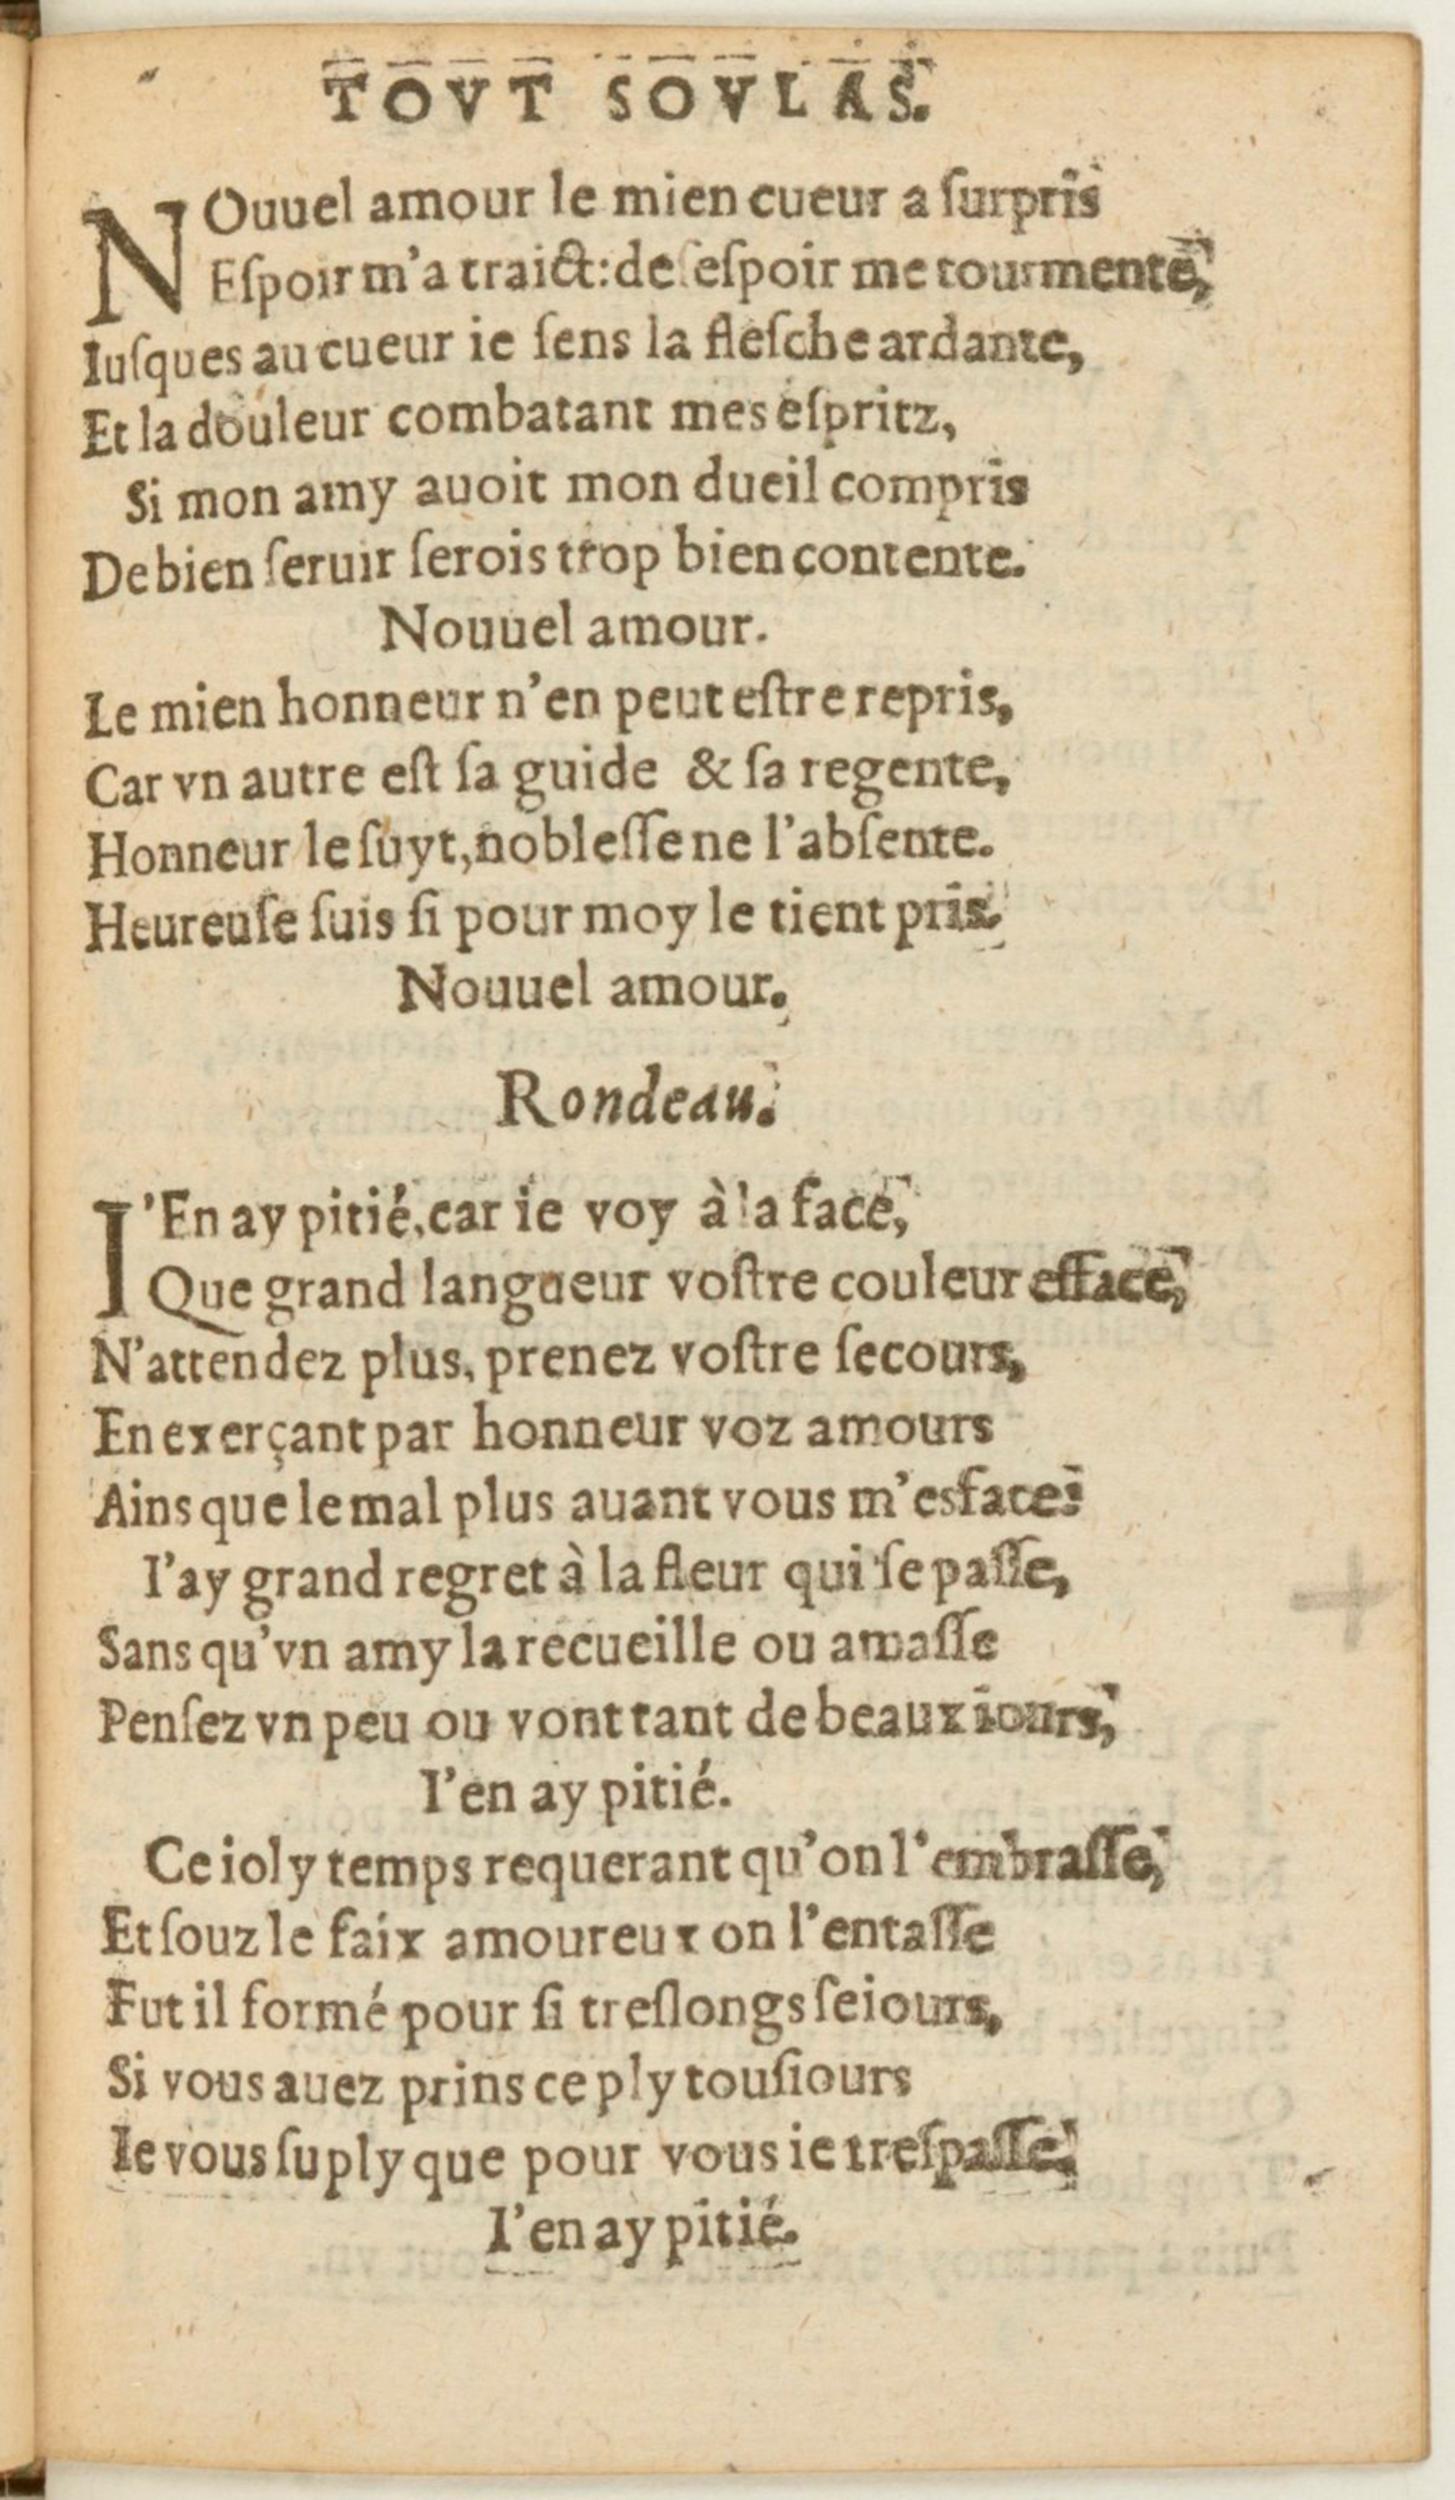 TOVT SOVLAS.
NOuuel amour le mien cueur a ſurpris
Eſpoir m'a traict: deſeſpoir me tourmente,
Iuſques au cueur ie ſens la fleſche ardante,
Et la douleur combatant mes eſpritz,
Si mon amy auoit mon dueil compris
De bien ſeruir ſerois trop bien contente.
Nouuel amour.
Le mien honneur n'en peut eſtre repris,
Car vn autre eſt ſa guide & ſa regente,
Honneur le ſuyt, nobleſſe ne l'abſente.
Heureuſe ſuis ſi pour moy le tient pris.
Nouuel amour.
Rondeau.
I'En ay pitié, car ie voy à la face,
Que grand langueur voſtre couleur efface,
N'attendez plus, prenez voſtre ſecours,
En exerçant par honneur voz amours
Ains que le mal plus auant vous m'esface:
I'ay grand regret à la fleur qui ſe paſſe,
Sans qu'vn amy la recueille ou amaſſe
Penſez vn peu ou vont tant de beaux iours,
I'en ay pitié.
Ce ioly temps requerant qu'on l'embraſſe,
Et ſouz le faix amoureux on l'entaſſe
Fut il formé pour ſi treſlongs ſeiours,
Si vous auez prins ce ply touſiours
Ie vous ſuply que pour vous ie treſpaſſe.
I'en ay pitié.